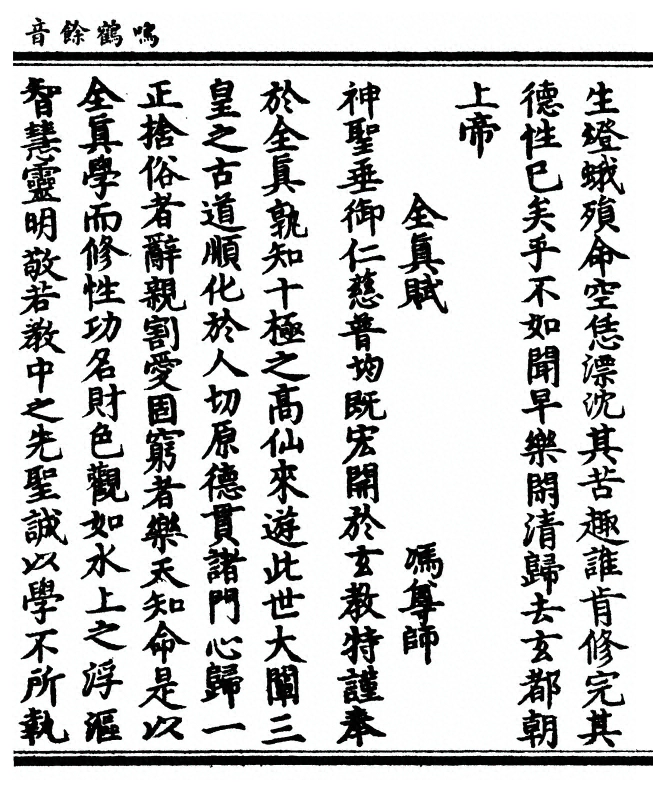 鳴鶴餘音
生燈蛾殞命空恁漂沈其苦趣誰肯修完其
德性已矣乎不如聞早樂閑清歸去玄都朝
上帝
全真賦 馮尊師
神聖垂御仁慈普均既宏開於玄教特謹奉
於全真孰知十極之高仙來遊此世大闡三
皇之古道順化於人切原德貫諸門心歸一
正捨俗者辭親割愛固窮者樂天知命是以
全真學而修性功名財色觀如水上之浮漚
智慧靈明敬若教中之先聖誠以學不所執